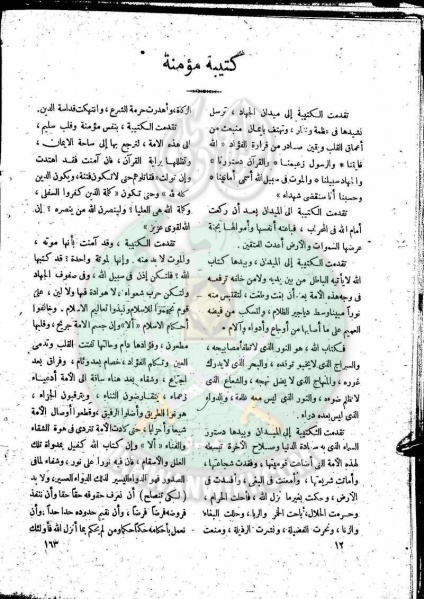 كتيبة مؤمنة
تقدمت الكتيبة إلى ميدان الجهاد ، ترسل
نشيدها فى عظمة ، وتهتف بإيمان منبعث من
أعماق القلب ويقين صادر من قرارة الفؤاد « الله
غايتنا ، والرسول زعيمنا ، والقرآن دستورنا ،
والجهاد سبيلنا ، والموت فى سبيل الله أسمى أمانينا ،
وحسبنا أنا سنقضى شهداء »
تقدمت الكتيبة إلى الميدان بعد أن ركعت
أمام الله فى المحراب ، فباعته أنفسها وأموالها بجنة
عرضها السموات والأرض أعدت المتقين .
تقدمت الكتيبة إلى الميدان ، وبيدها كتاب
الله لا يأتيه الباطل من بين يديه ولا من خلفه ترفعه
فى وجه هذه الأمة بعد أن بغت وطغت ، لتقتبس منه
نوراً مبيناً وسط دياجير الظلام ، ولتسكب من فيضه
العميم على ما أصابها من أوجاع وأدواء وآلام
فكتاب الله ، هو النور الذى لا تطفأ مصابيحه ،
والسراج الذى لا يخبو توقده ، والبحر الذى لا يدرك
غوره ، والمنهاج الذى لا يضل نهجه ، والشعاع الذى
لا يظلم ضوءه ، والنور الذى ليس معه ظلمة ، والدواء
الذى ليس بعده داء .
تقدمت الكتيبة إلى الميدان وبيدها دستور
السماء الذى به سعادة الدنيا وصلاح الآخرة تبسطه
لهذه الأمة التى أضاعت قوميتها ، وفقدت شجاعتها ،
وأماتت شريعتها ، وأمعنت فى البغى ، وأفسدت فى
الأرض ، وحكمت بغير ما نزل الله ، فأحلت الحرام ،
وحرمت الحلال ، أباحت الخمر والربا ، وحللت البغاء
والزنا ، ونحرت الفضيلة ، ونشرت الرذيلة ، ومنعت
١٢
الزكاة ، وأهدرت حرمة الشرع ، وانتهكت قداسة الدين .
تقدمت الكتيبة ، بنفس مؤمنة وقلب سليم ،
الى هذه الأمة ، لترجع بها إلى ساحة الإيمان ،
وتظللها براية القرآن ، فان آمنت فقد اهتدت
وان تولت « فقاتلوهم حتى لا تكون فتنة ، ويكون الدين
كله لله » وحتى تكون « كلمة الذين كفروا السفلى ،
وكلمة الله هى العليا ؟ ولينصرن الله من ينصره ؟ إن
الله لقوى عزيز .
تقدمت الكتيبة ، وقد آمنت بأنها موتة ،
والموت لا بد منه . وإنها لموتة واحدة ؟ قد كتبها
الله ؟ فلتكن إذن فى سبيل الله ، وفى صفوف الجهاد
ولتكن حرب شعواء . لا هوادة فيها ولا لين ، على
قوم للاسلام وتعاليم الاسلام . وخالفوا
أحكام الاسلام « ألا » وإن جسم الأمة جريح ، وقلبها
مطعون ، وفؤادها دام وحالتها تفتت القلب وتدمى
العين وتكلم الفؤاد ، خصام بعد وئام ، وفراق بعد
تجمع ، وشقاء بعد هناءة ساقة الى الأمة أدعياء
زعماء ، يتقارضون الثناء ، ويترقبون الجزاء ،
هونوا الطريق وأضلوا الرفيق ، وقطعوا أوصال الأمة
شيعاً وأحزاباً ، حتى كادت الأمة تتردى فى هوة الشقاء
والفناء « ألا » وإن كتاب الله كفيل بمداواة تلك
العلل والأسقام ، فان فيه نوراً على نور ، وشفاء لما فى
الصدور فهو الدواء اليسير لذلك الداء العسير ، ولا بد
( لكى تنصلح ) أن نعرف حقوقه حقاً حقاً وأن ننفذ
فروضه فرضاً فرضاً ، وأن نقيم حدوده حداً حداً ، وأن
نعمل بأحكامه حكماً حكماً ومن لم يحكم بما أنزل الله فأولئك
١٦٣